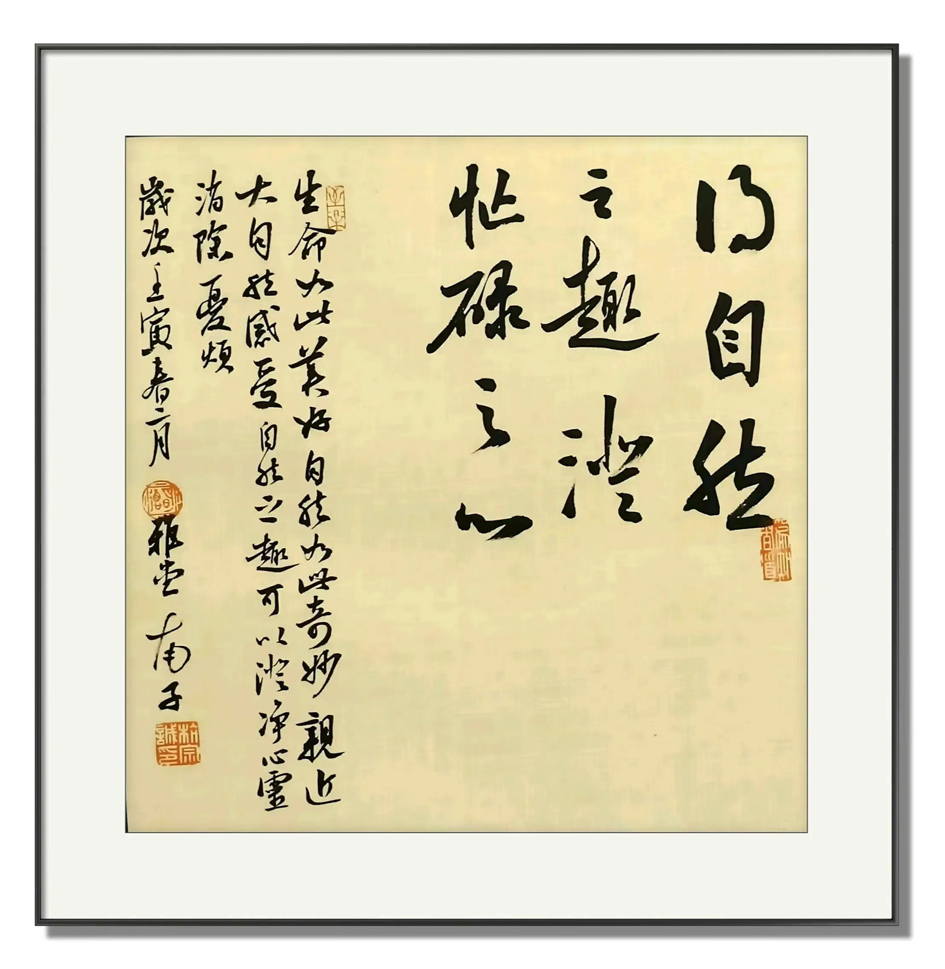 得自然
之趣澄
忙碌之心
生命如此美好自然如此奇妙親近
大自然感受自然之趣可以澄净心靈
消除憂煩
歲次壬寅春二月雅堂南子